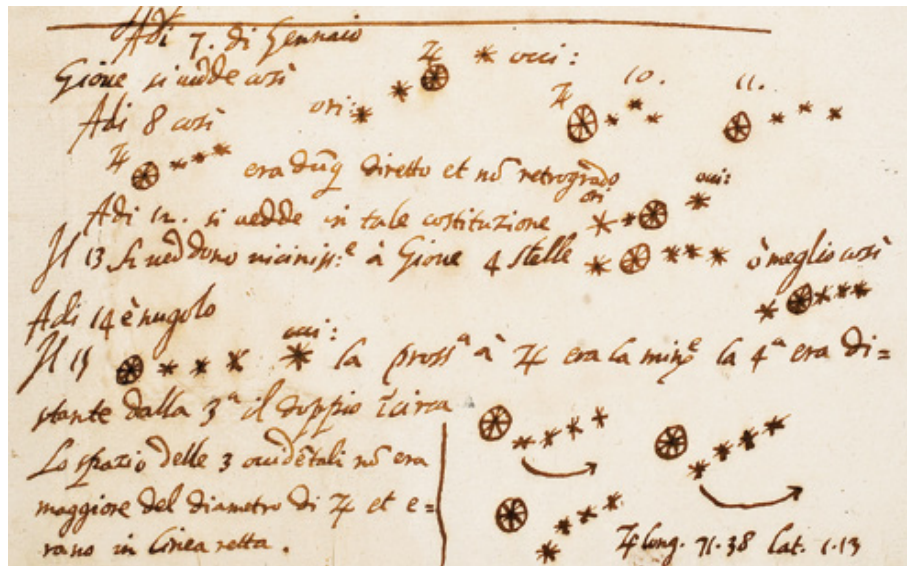 Adi 7. di Gennaio
Gioue si uedde così ♃ occi:
ori: ♃ 10. 11.
Adi 8 così
♃ era dūq diretto et nō retrogrado
ori occi:
Adi 12. si uedde in tale costituzione
Il 13 si ueddono uiciniss.e à Gioue 4 stelle ò meglio così
Adi 14 è nugolo
Il 15 occi: la pross.a à ♃ era la min.e la 4.a era di=
stante dalla 3.a il doppio circa
Lo spazio delle 3 occidētali nō era
maggiore del diametro di ♃ et e=
rano in linea retta.
♃ long. 71.38 lat. 1.13